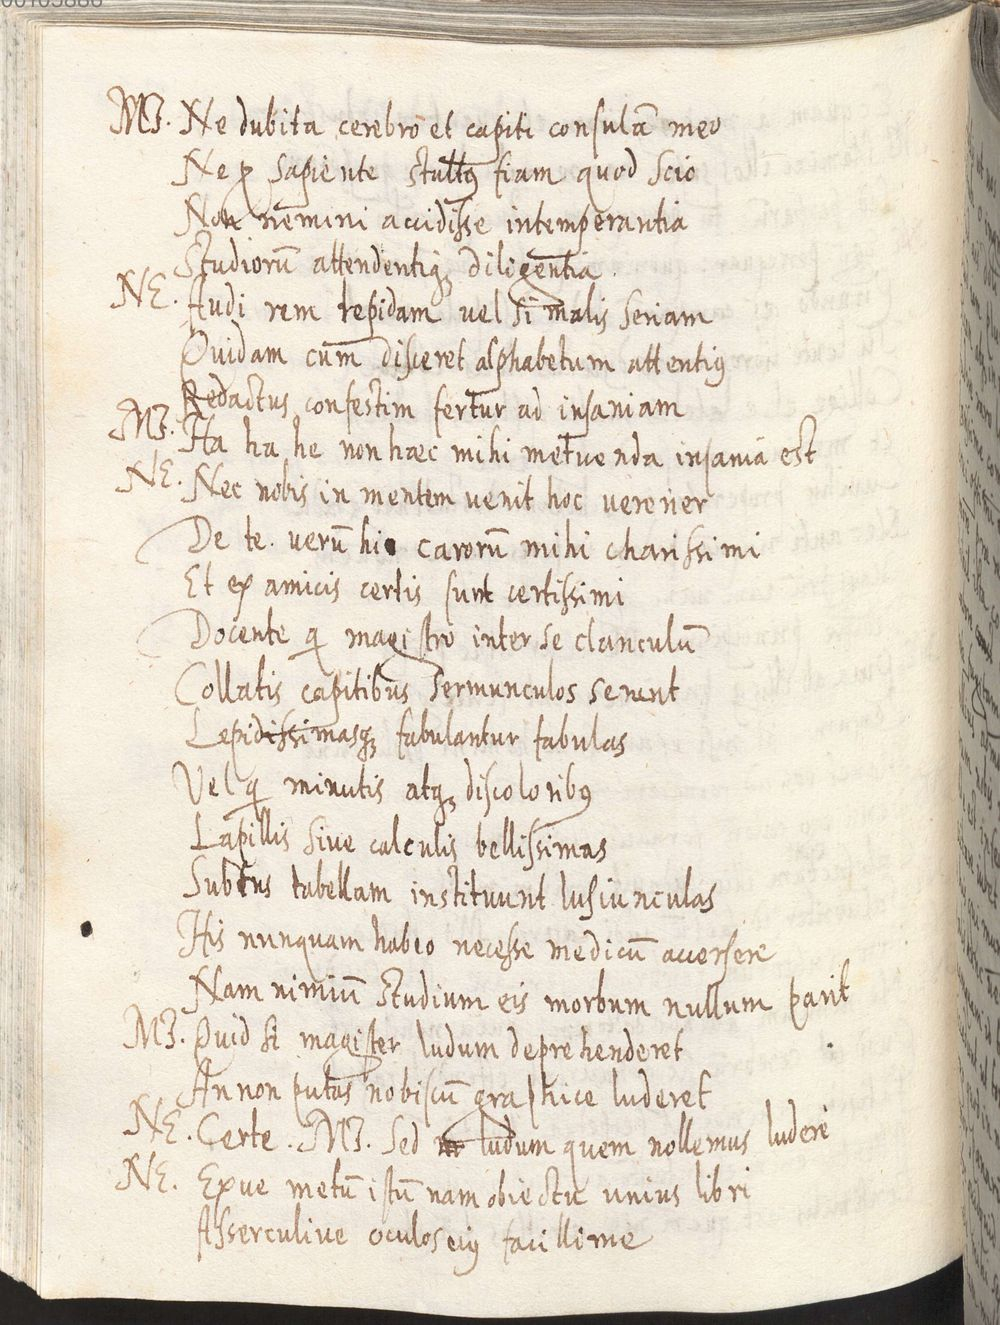 00103886
MI. Ne dubita cerebro et capiti consulã meo
Ne ꝑ sapiente stultꝰ fiam quod scio
Non nemini accidisse intemperantia
Studiorũ attendentiqꝫ diligentia.
NE. Audi rem lepidam vel si malis seriam
Quidam cum disceret alphabetum attentiꝰ
Redactus confestim fertur ad insaniam
MI. Ha ha he non hæc mihi metuenda insania est
NE. Nec nobis in mentem venit hoc vererier
De te. verũ hi carorũ mihi charissimi
Et ex amicis certis sunt certissimi
Docente q magistro inter se clanculũ
Collatis capitibus sermunculos serunt
Lepidissimasqꝫ fabulantur fabulas
Vel q minutis atqꝫ discoloribꝰ
Lapillis sive calculis bellissimas
Subtus tabellam instituunt lusiunculas
His nunquam habeo necesse medicũ accersere
Nam nimiũ studium eis morbum nullum parit
MI. Quid si magister ludum deprehenderet
An non putas nobiscũ graphice luderet
NE. Certe. MI. Sed ludum quem nollemus ludere
NE. Exue metũ istũ nam obiectu unius libri
Asserculive oculos eiꝰ facillime